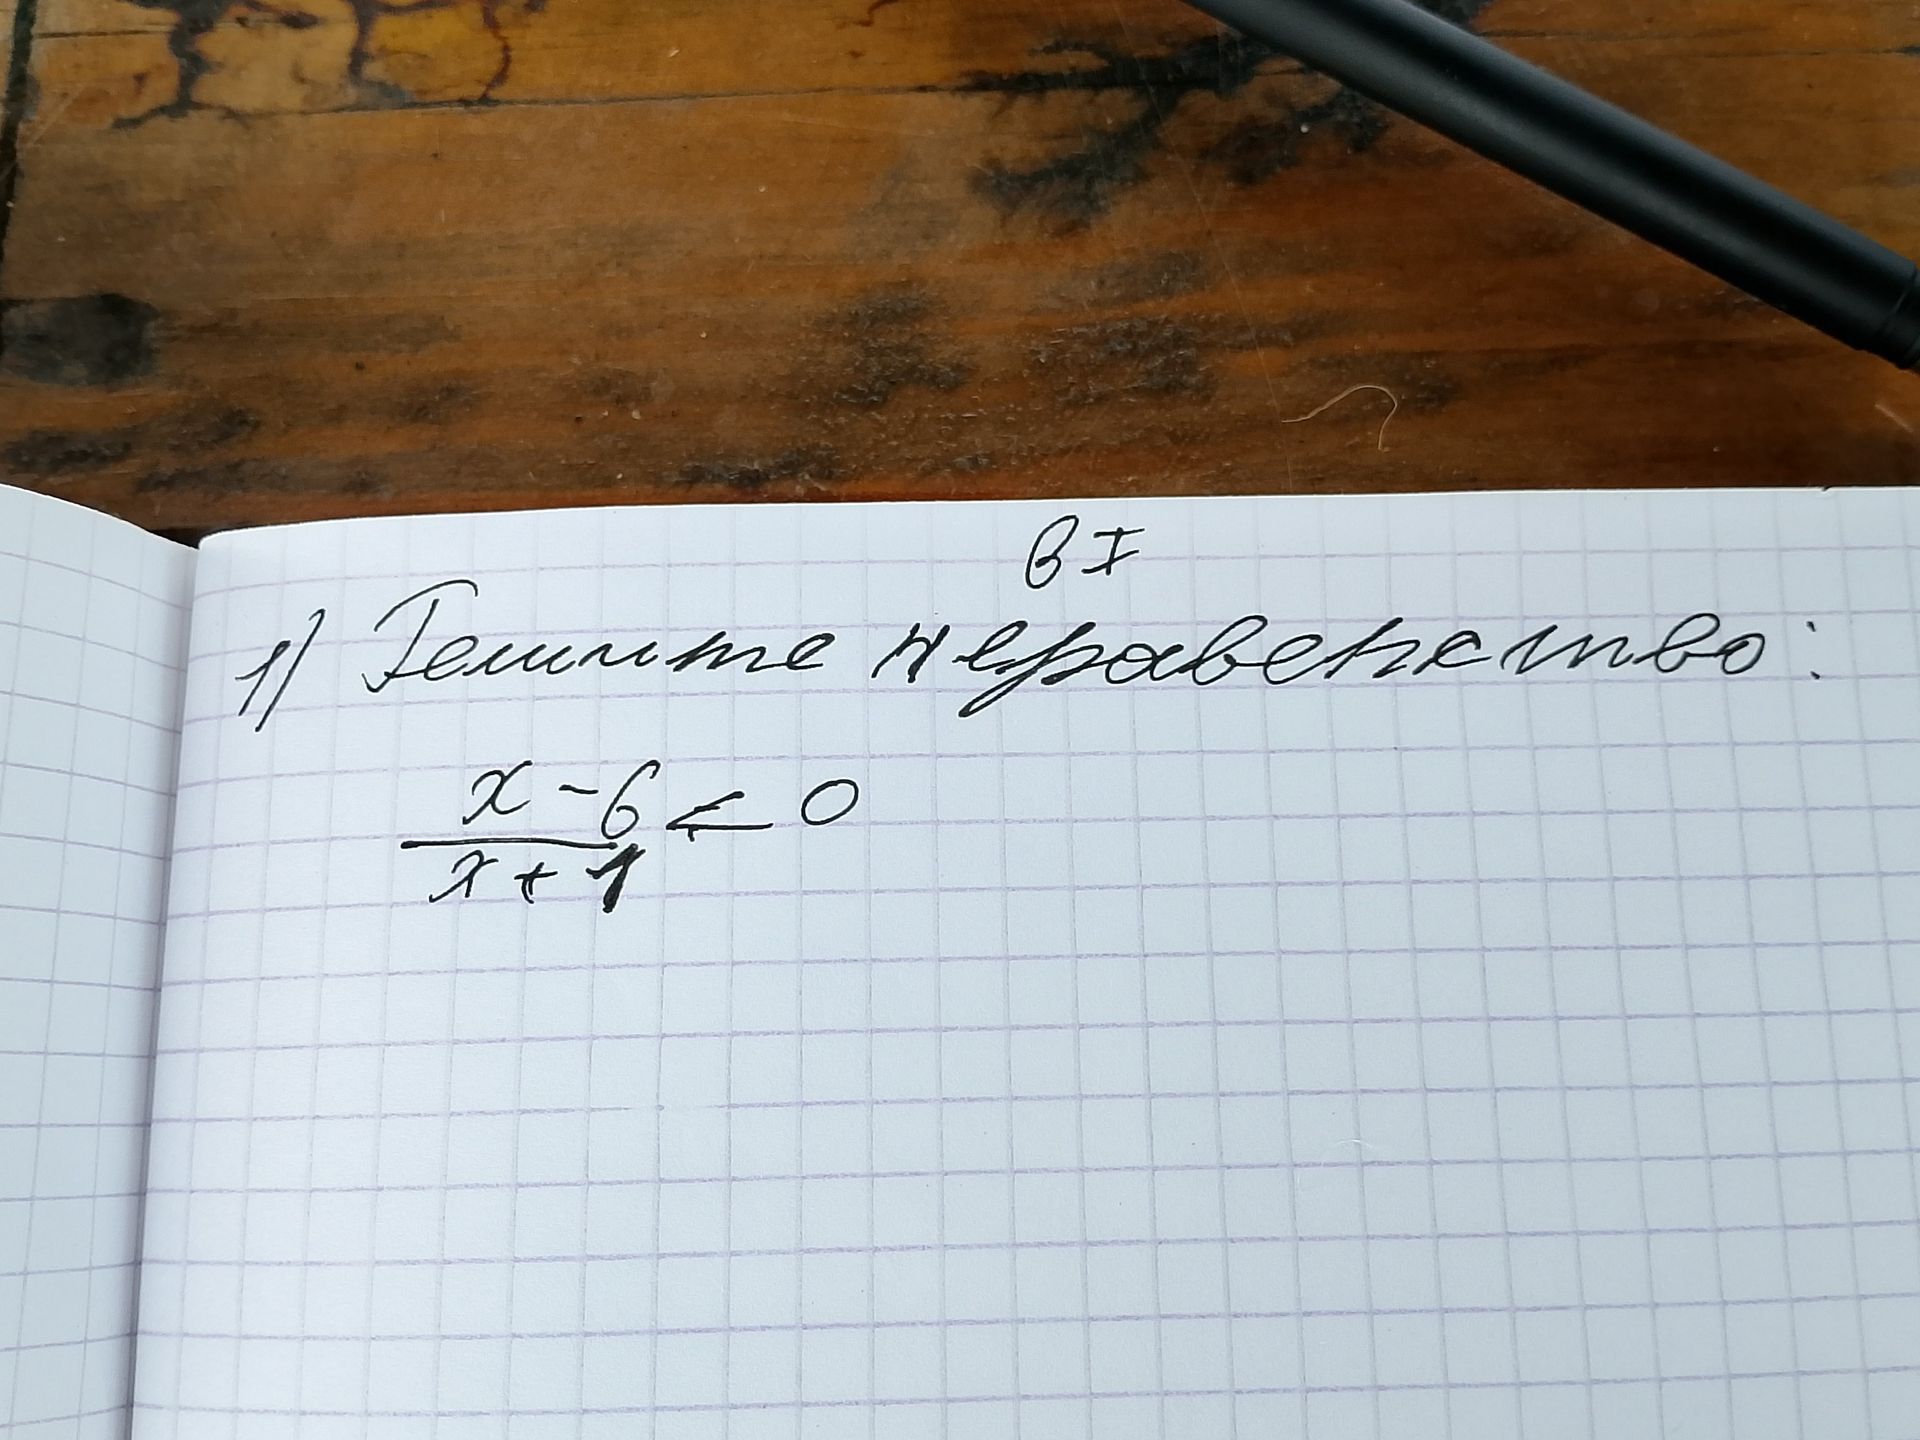 в I
1) Решите неравенство:
x - 6 < 0
x + 1